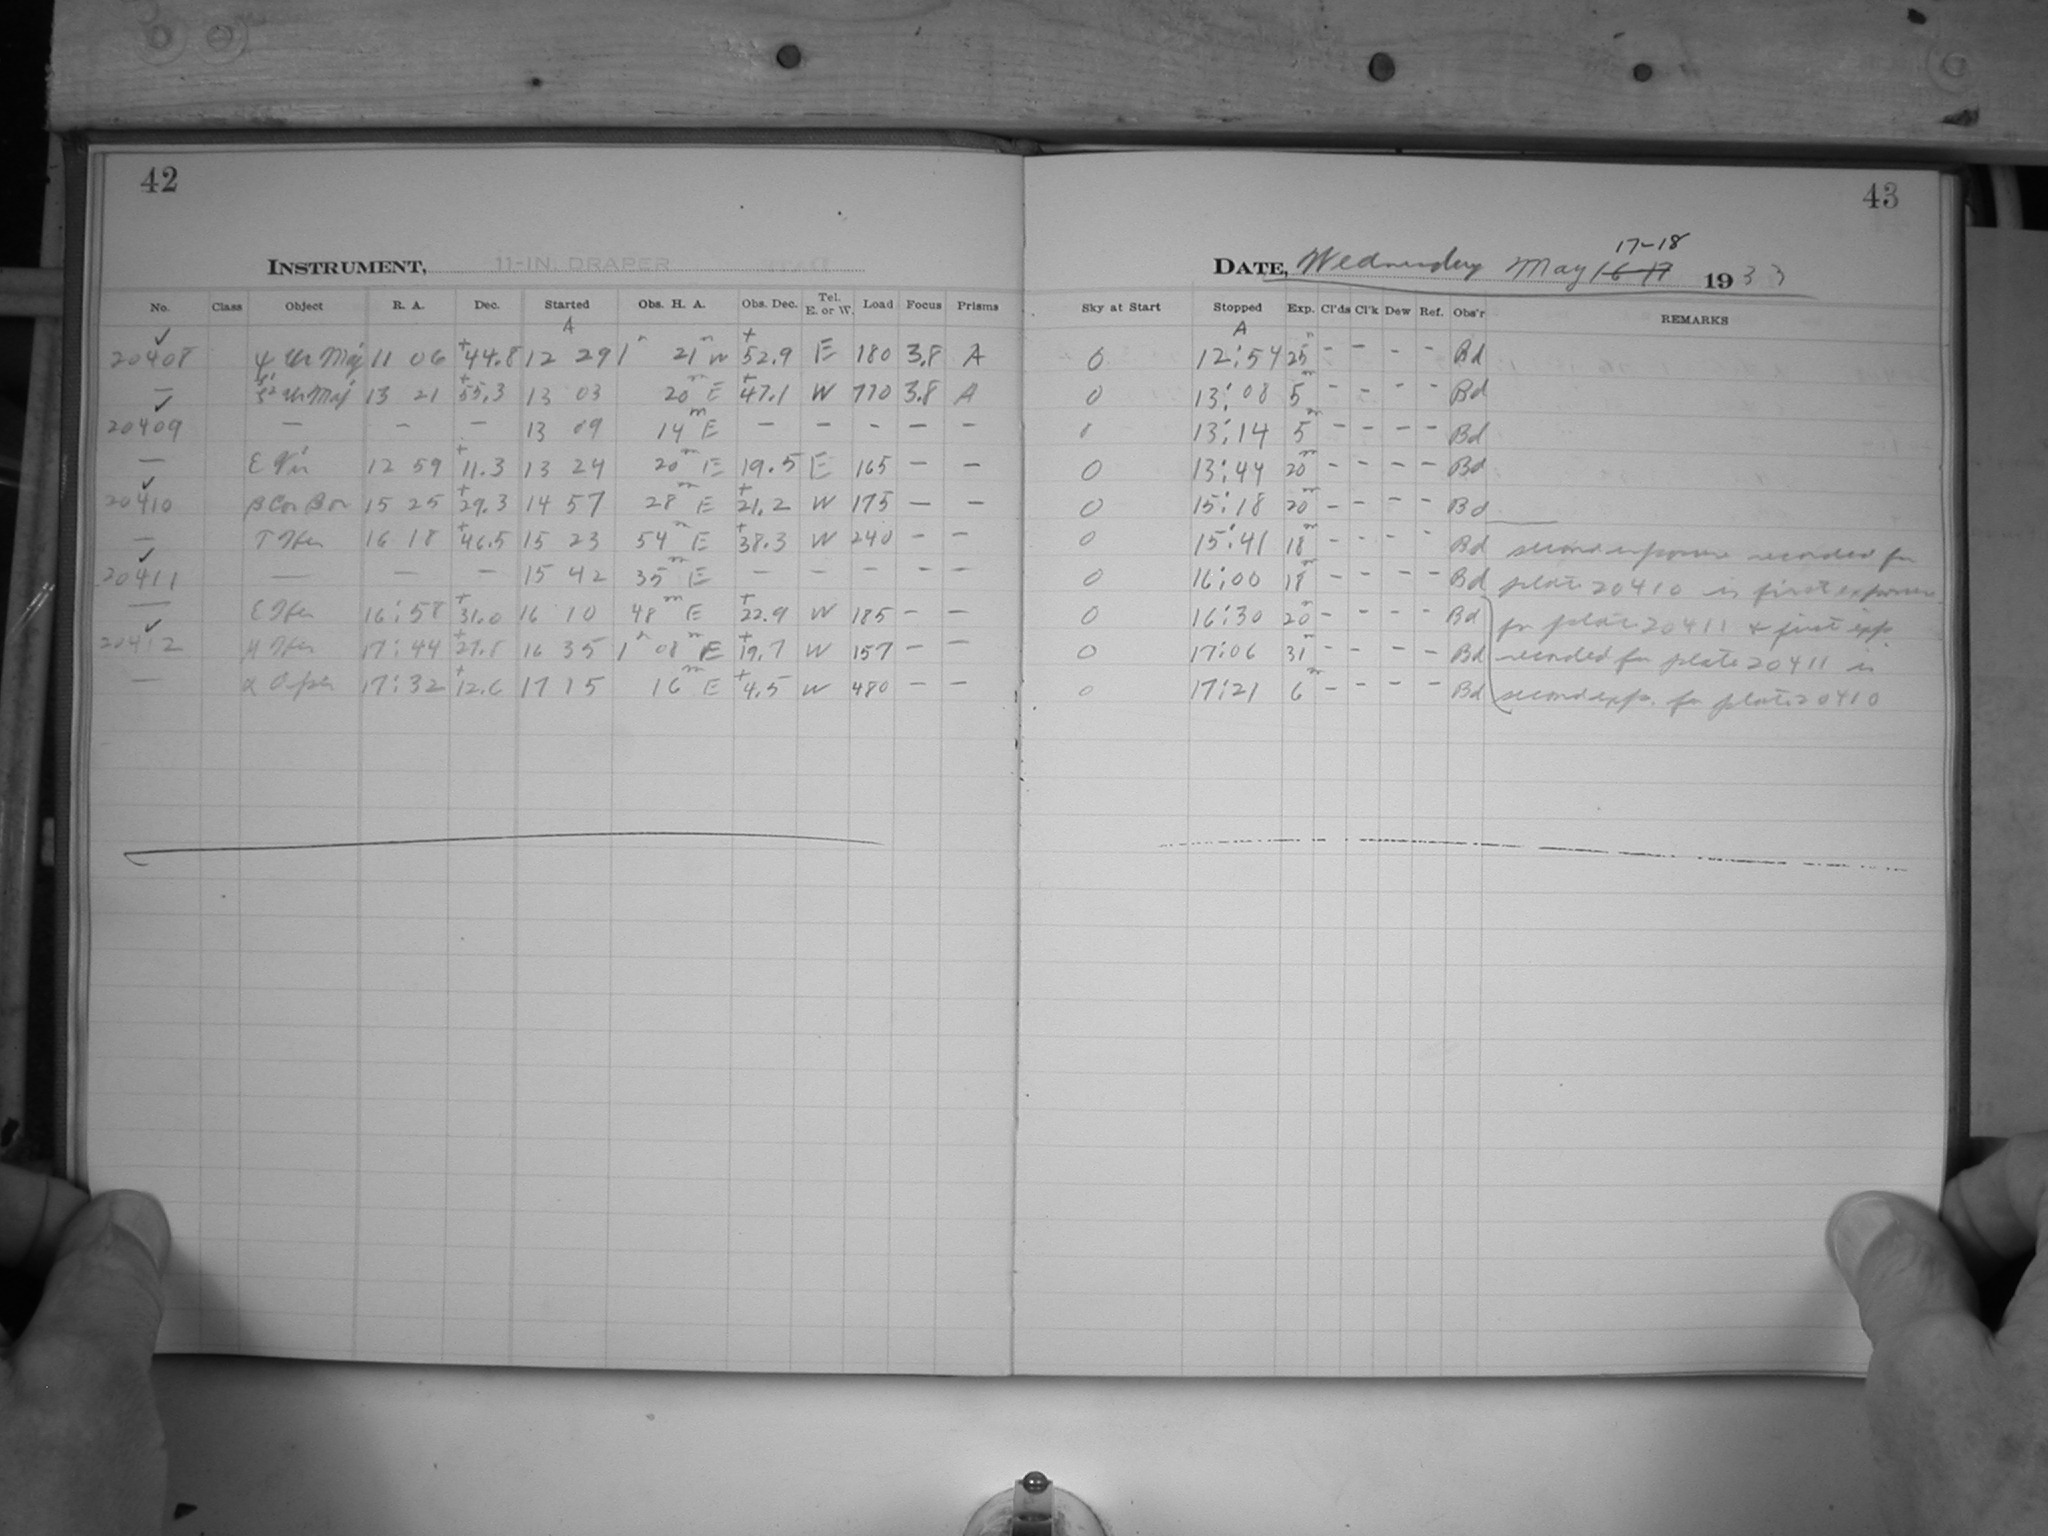 42
INSTRUMENT, 11-IN. DRAPER
No. Class Object R. A. Dec. Started Obs. H. A. Obs. Dec. Tel. E. or W. Load Focus Prisms
A
20408 ✓ ψ Ur Maj 11 06 +44.8 12 29 1h 21m W +52.9 E 180 3.8 A
— ζ² Ur Maj 13 21 +55.3 13 03 20m E +47.1 W 770 3.8 A
20409 ✓ — — — 13 09 14m E — — — — —
— ε Vir 12 59 +11.3 13 24 20m E 19.5 E 165 — —
20410 ✓ β Cor Bor 15 25 +29.3 14 57 28m E +21.2 W 175 — —
— τ Her 16 18 +46.5 15 23 54m E +38.3 W 240 — —
20411 ✓ — — — 15 42 35m E — — — — —
— ε Her 16:58 +31.0 16 10 48m E +22.9 W 185 — —
20412 ✓ μ Her 17:44 +27.8 16 35 1h 08m E +19.7 W 157 — —
— α Oph 17:32 +12.6 17 15 16m E +4.5 W 480 — —
43
17-18
DATE, Wednesday May 16-17 1933
Sky at Start Stopped Exp. Cl'ds Cl'k Dew Ref. Obs'r REMARKS
A
0 12:54 25m - - - - Bd
0 13:08 5m - - - - Bd
0 13:14 5m - - - - Bd
0 13:44 20m - - - - Bd
0 15:18 20m - - - - Bd
0 15:41 18m - - - - Bd second exposure recorded for
0 16:00 18m - - - - Bd plate 20410 is first exposure
0 16:30 20m - - - - Bd for plate 20411 & first exp.
0 17:06 31m - - - - Bd recorded for plate 20411 is
0 17:21 6m - - - - Bd second exp. for plate 20410